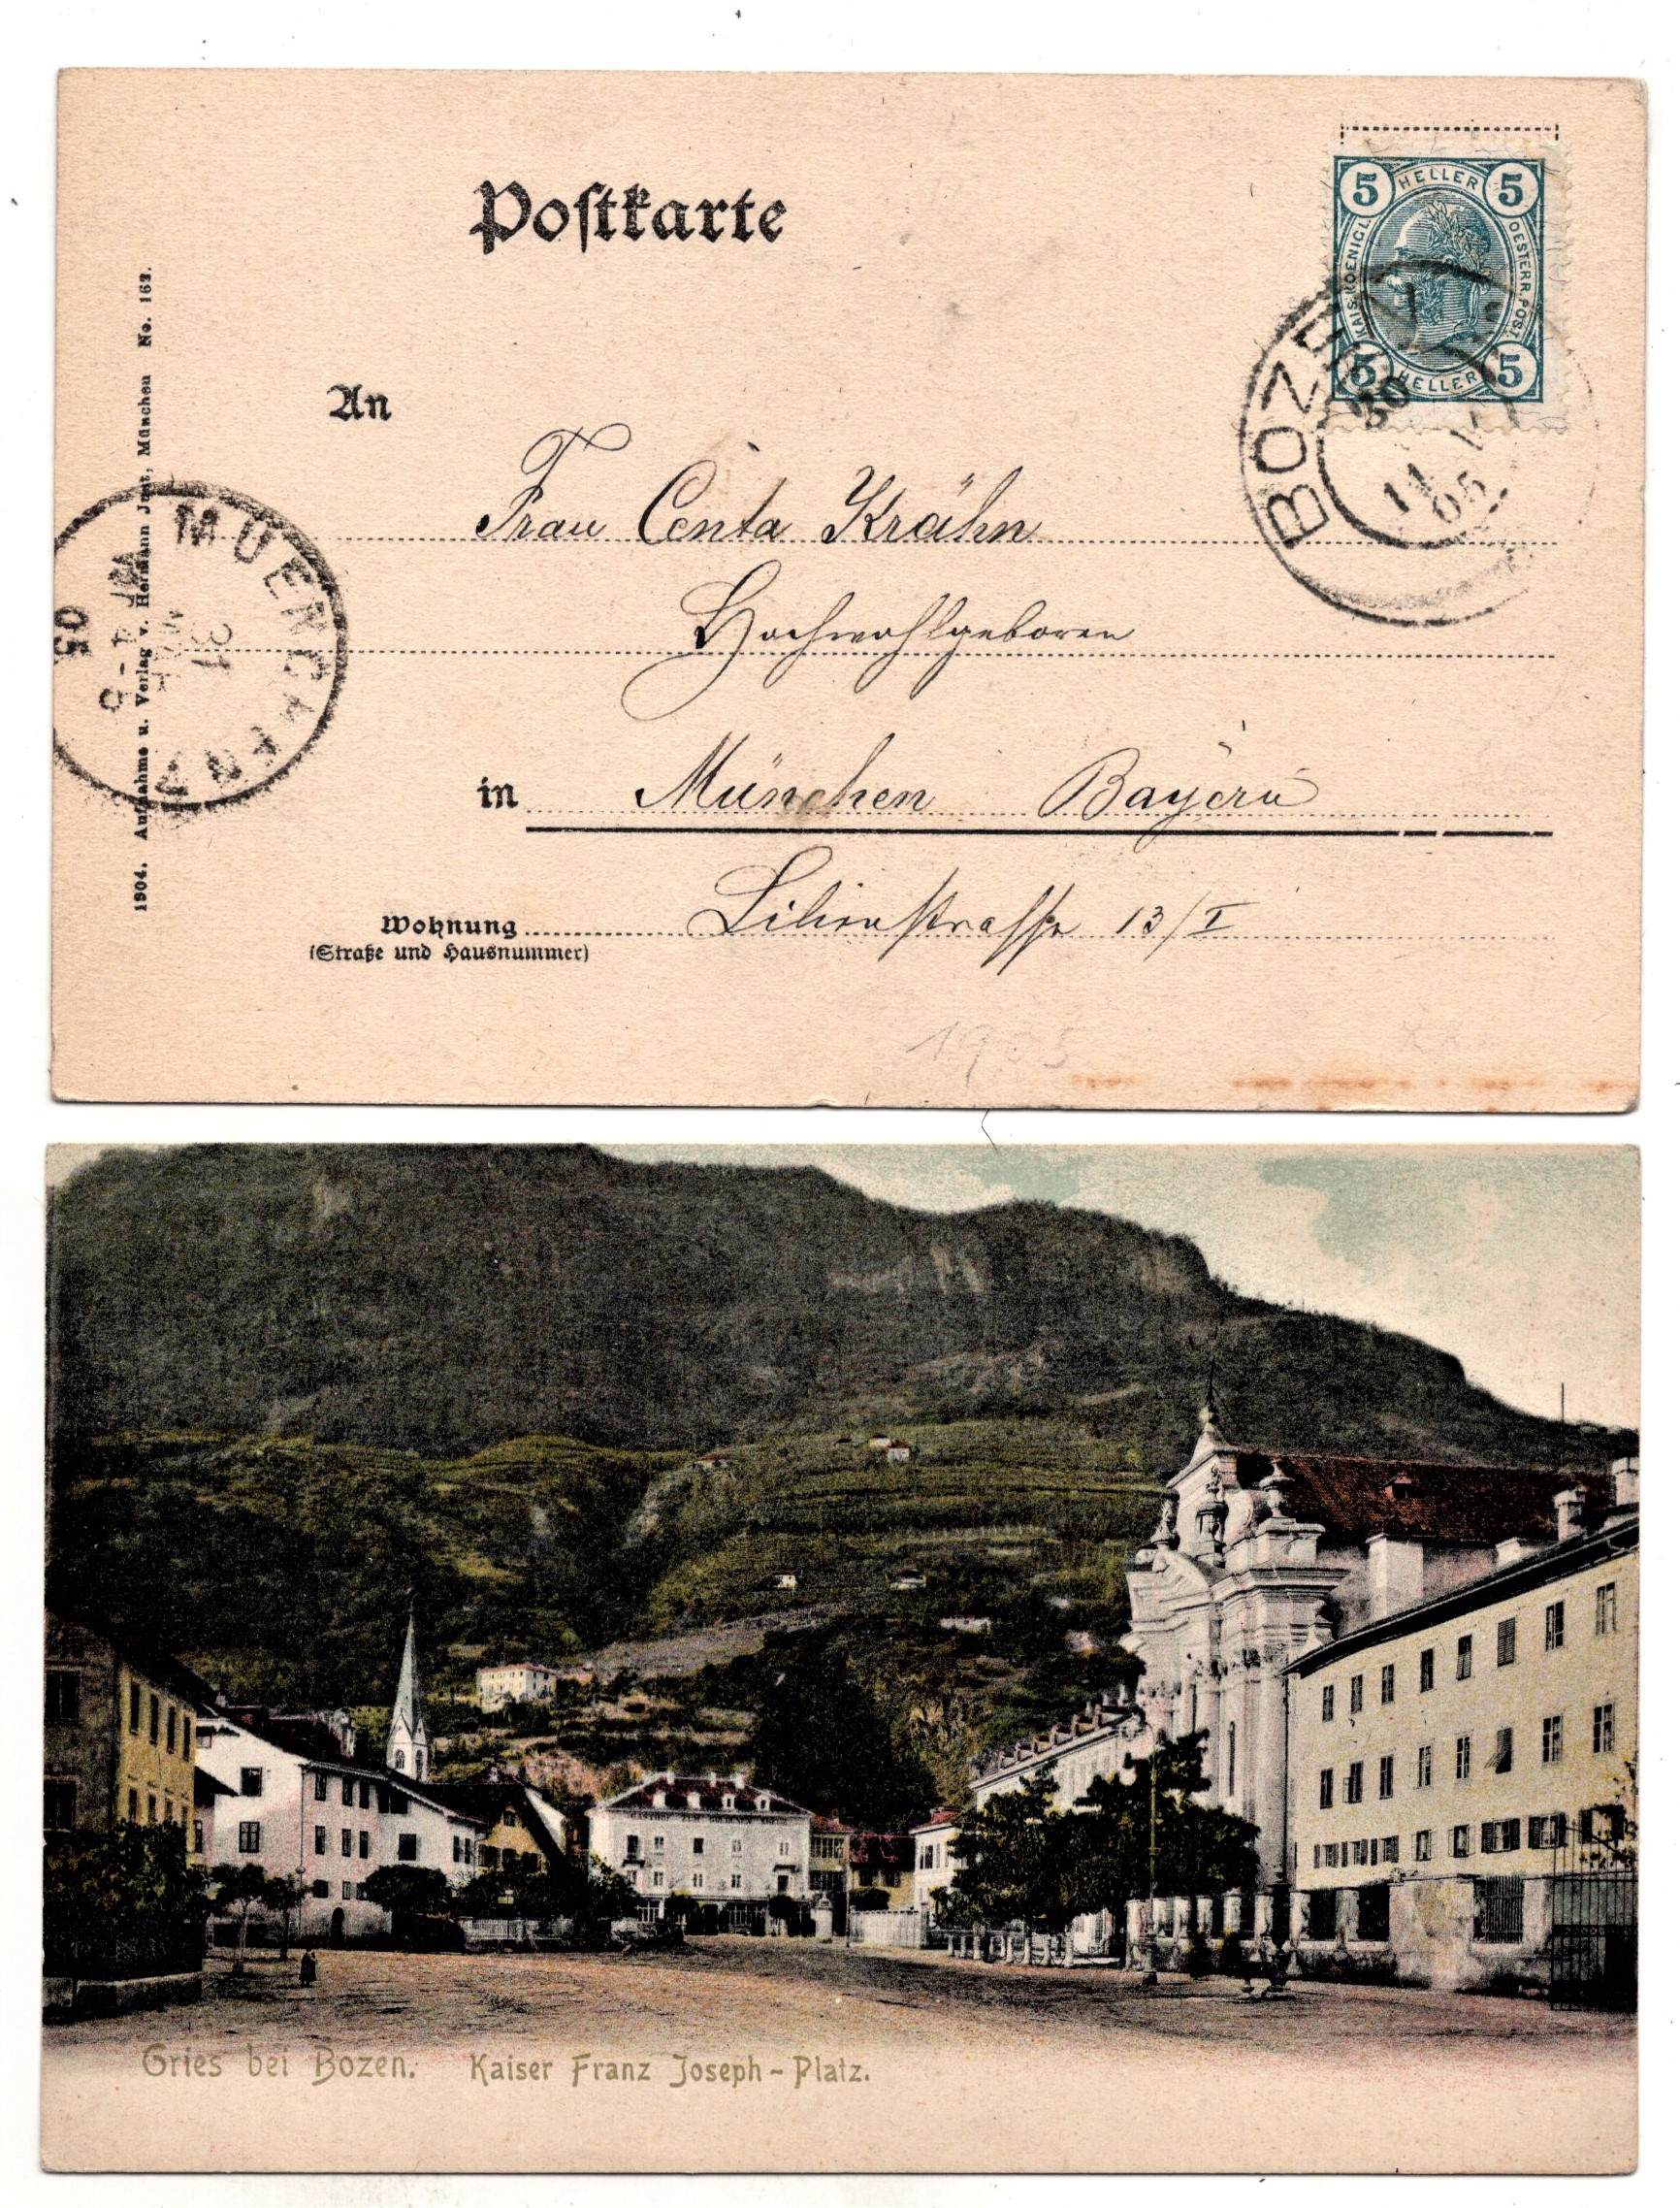 Postkarte
5 HELLER 5
KAIS. KOENIGL. OESTERR. POST
5 HELLER 5
BOZEN
30
11
05
1904. Aufnahme u. Verlag v. Hermann Jost, München No. 163.
MUENCHEN
31
05
An
Frau Centa Krähn
Hochwohlgeboren
in München Bayern
Wohnung Lilienstrasse 13/I
(Straße und Hausnummer)
1905
GASTHOF ZUM GOLDENEN
Gries bei Bozen. Kaiser Franz Joseph-Platz.